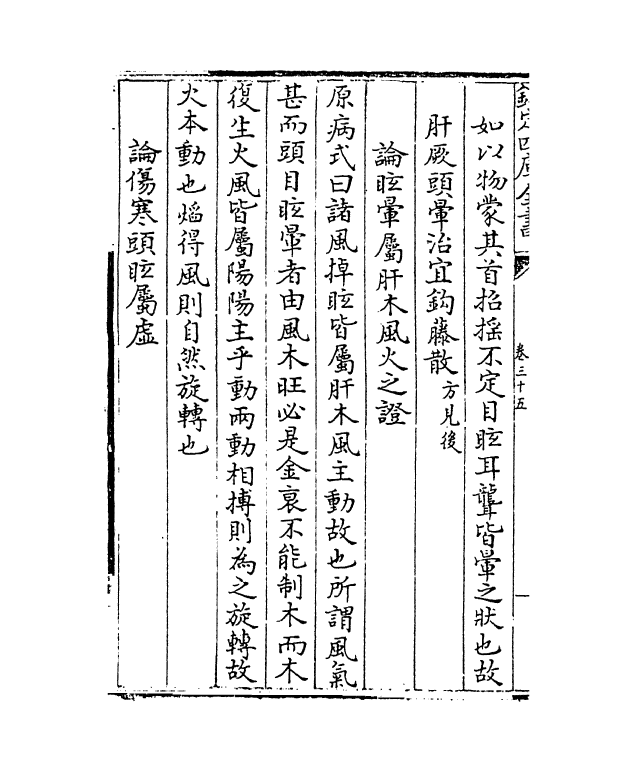 欽定四庫全書
卷三十五
如以物蒙其首招揺不定目眩耳聾皆暈之狀也故
肝厥頭暈治宜鈎藤散方見後
論眩暈屬肝木風火之證
原病式曰諸風掉眩皆屬肝木風主動故也所謂風氣
甚而頭目眩暈者由風木旺必是金衰不能制木而木
復生火風皆屬陽陽主乎動兩動相搏則為之旋轉故
火本動也熖得風則自然旋轉也
論傷寒頭眩屬虚